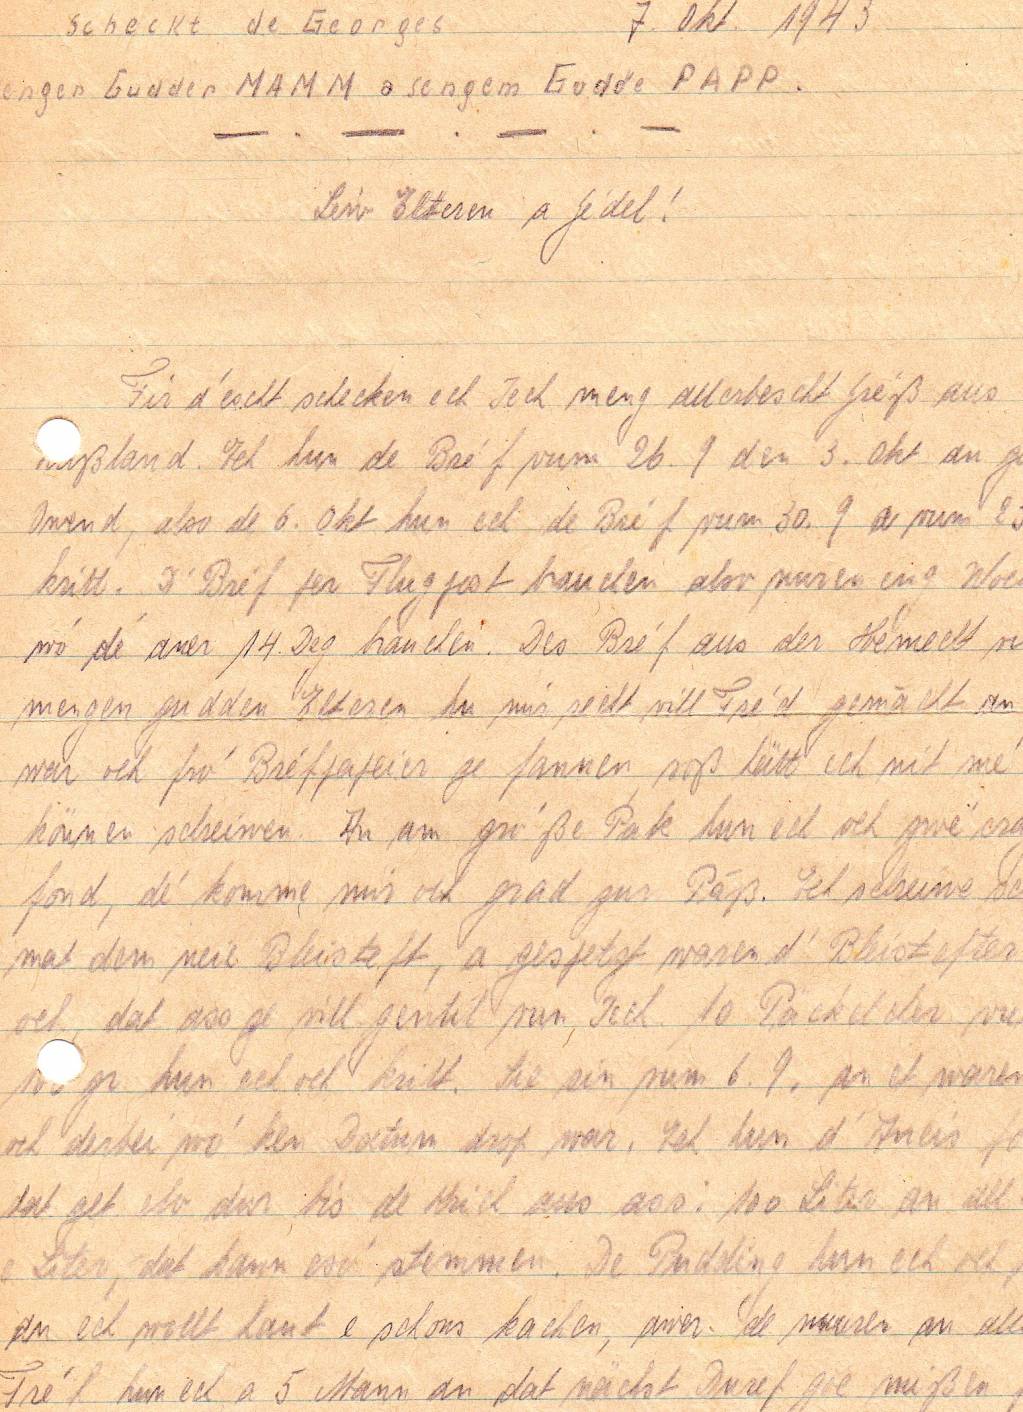 scheckt de Georges 7. Okt. 1943
enger Gudder MAMM a sengem Gudde PAPP.
Léiv Elteren a Jédel!
Fir d'éischt schecken ech Iech meng allerbescht Gréß aus
ußland. Ech hun de Bréf vum 26. 9 den 3. Okt an
Owend, also de 6. Okt hun ech de Bréf vum 30. 9 a vum 23
kritt. D'Bréf per Flugpost brauchen also nuren eng
wó dé aner 14. Deg brauchen. Des Bréf aus der Hémecht
mengen gudden Elteren hu mir recht vill Fré'd gemâcht an
war och fró Bréfpapeier ze fannen, soß hätt ech nit mé
können schreiwen. An am gró'ße Pak hun ech och zwé
fond, dé komme mir och grad zur Paß. Ech schreiwe
mat dem neie Bleisteft, a gespetzt waren d'Bleistefter
och, dat ass ze vill gentil vun Iech. 10 Päckelcher
gr hun ech och kritt. Sie sin vum 6. 9. an et waren
och derbei wó ken Datum drop war. Ech hun d'Aneis
dat get elo dur bis de Krich aus ass: 100 Liter an all
e Liter, dat kann esó stemmen. De Pudding hun ech och
an ech wollt haut e schons kachen, awer de muren an aller
Fré'h hun ech a 5 Mann an dat nächst Duref goe mißen